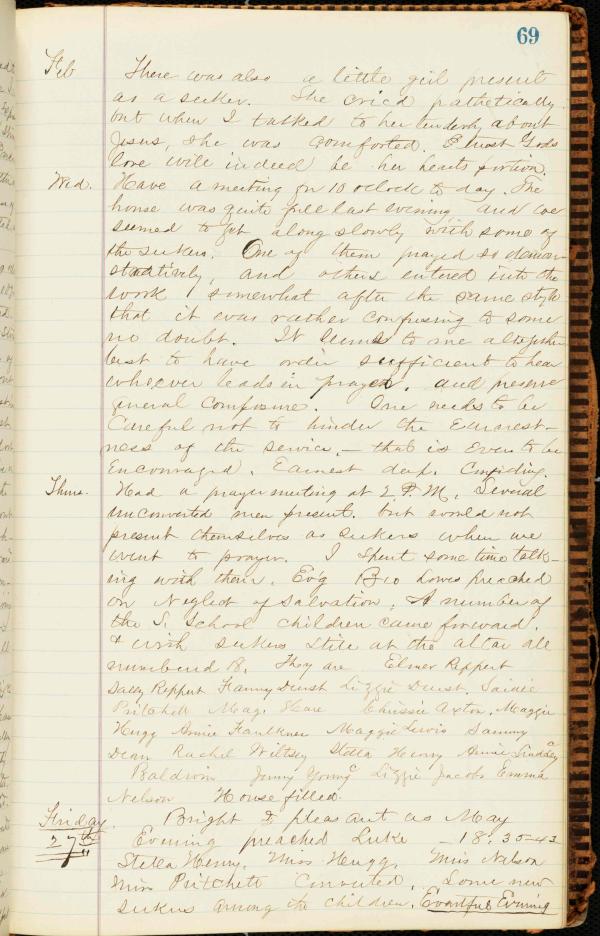 69
Feb There was also a little girl present
as a seeker. She cried pathetically,
but when I talked to her tenderly about
Jesus, she was comforted. I trust Gods
love will indeed be her hearts portion.
Wed. Have a meeting for 10 oclock to day. The
house was quite full last evening and we
seemed to get along slowly with some of
the seekers. One of them prayed so demon-
stratively, and others entered into the
work somewhat after the same style
that it was rather confusing to some
no doubt. It seems to me altogether
best to have order sufficient to hear
whoever leads in prayer, and preserve
general composure. One needs to be
careful not to hinder the earnest-
ness of the service, — that is ever to be
encouraged. Earnest deep. Confiding.
Thurs. Had a prayer meeting at 2 P.M. Several
unconverted men present, but would not
present themselves as seekers when we
went to prayer. I spent some time talk-
ing with them. Ev'g Bro Lewis preached
on Neglect of Salvation. A number of
the S. School children came forward,
& with seekers still at the altar all
numbered 18. They are Elmer Reppert
Sally Reppert Fanny Durst Lizzie Durst. Saidie
Pritchett Mag. Hare Chrissie Axton, Maggie
Hugg Annie Faulkner Maggie Lewis Sammy
Dean Rachel Wiltsey Stella Henry Annie Lindsey
Baldwin Jenny Young Lizzie Jacobs Emma
Nelson House filled.
Friday Bright & pleasant as May
27th Evening preached Luke - 18: 35-43
Stella Henry, Miss Hugg, Miss Nelson
Miss Pritchett Converted. Some new
seekers among the children. Eventful Evening